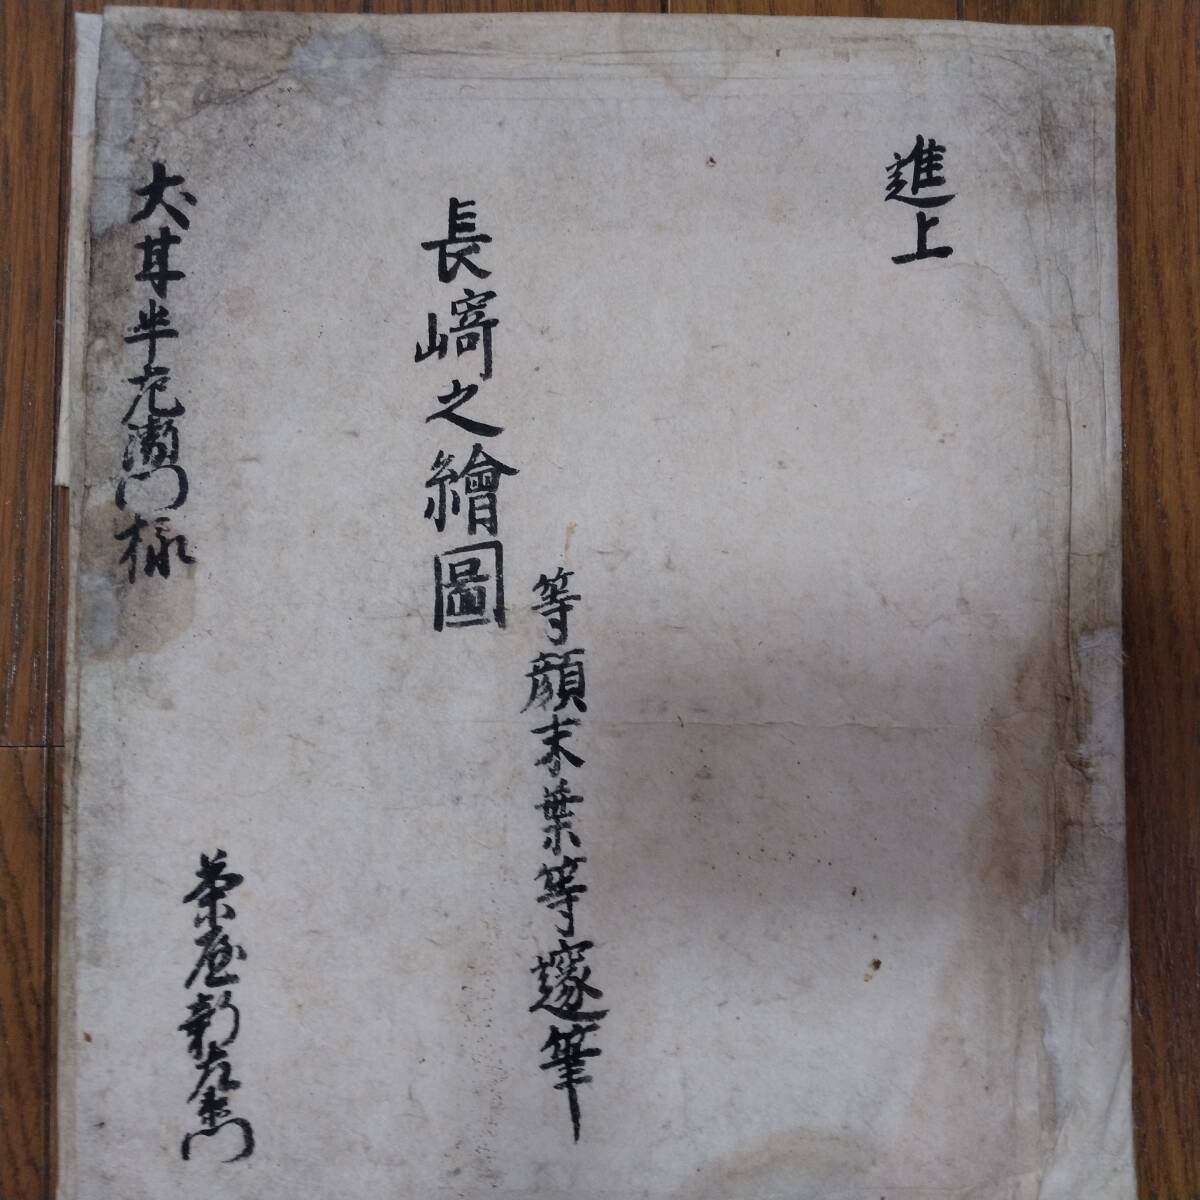 進上
等顔末葉等邃筆
長崎之繪圖
茶屋新左衛門
犬甘半左衛門様